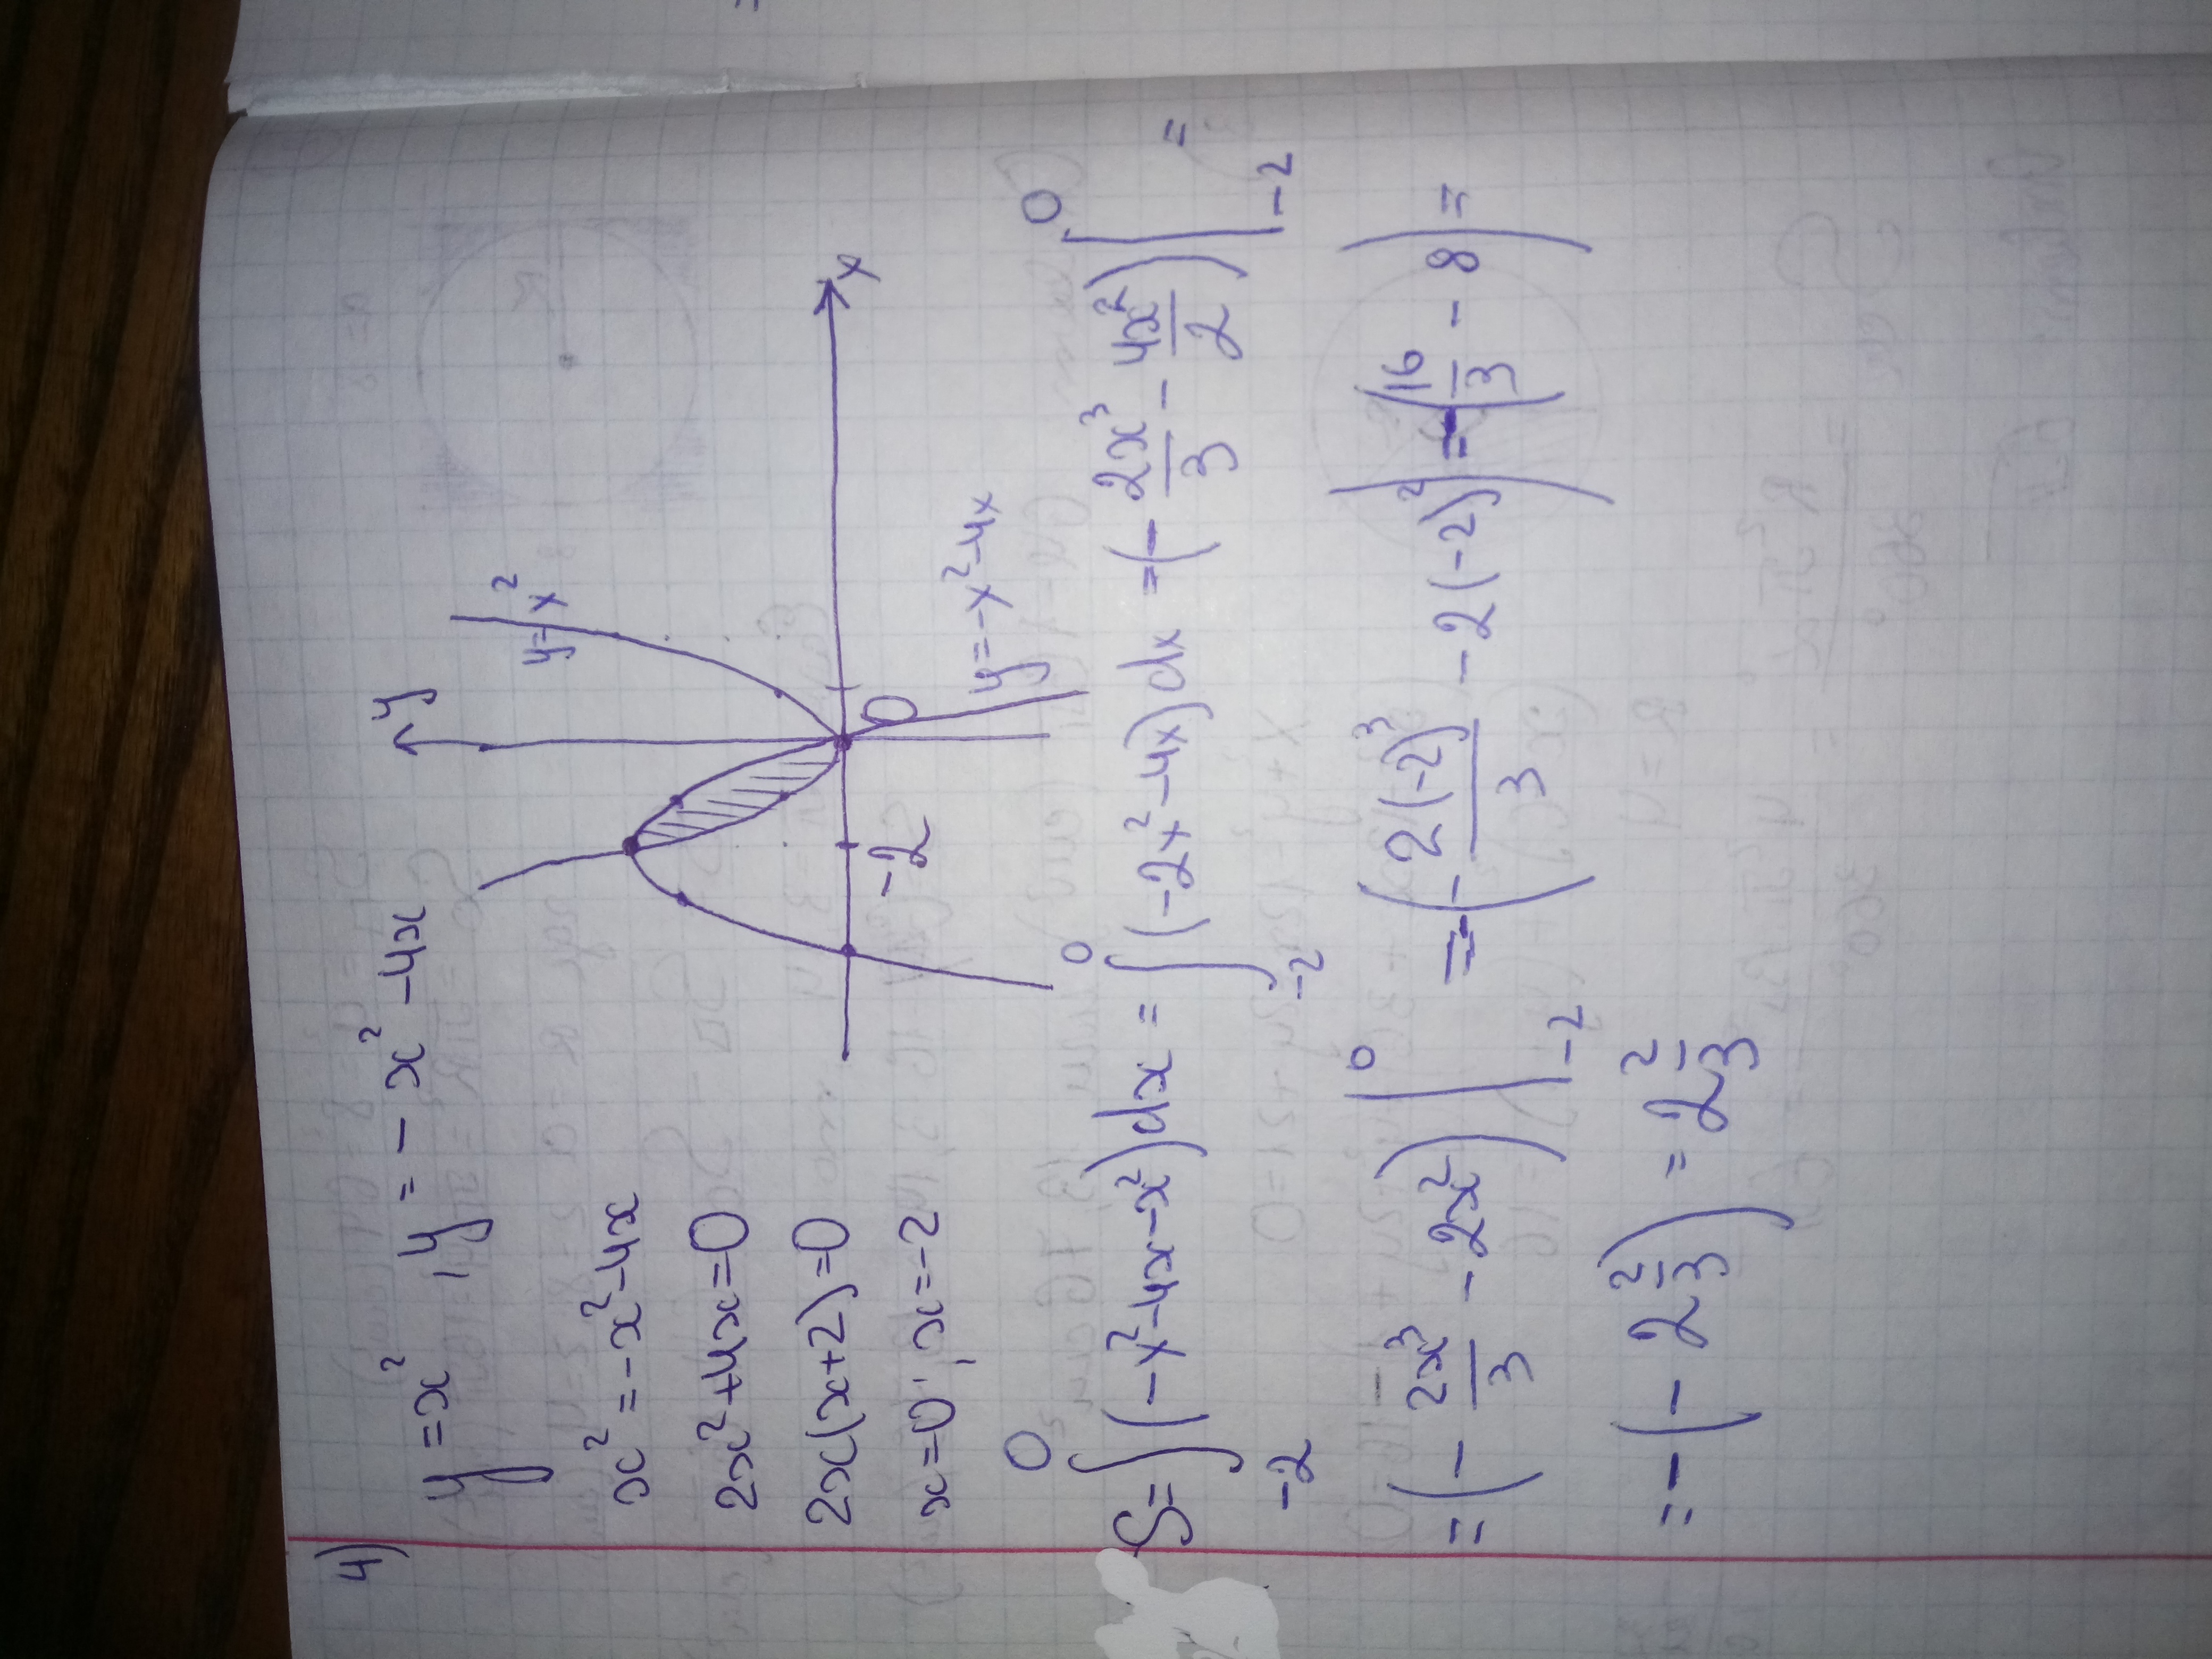 4)
y = x², y = -x² - 4x
x² = -x² - 4x
2x² + 4x = 0
2x(x+2) = 0
x = 0; x = -2
y
y = x²
x
0
-2
y = -x² - 4x
S = ∫₋₂⁰ (-x² - 4x - x²)dx = ∫₋₂⁰ (-2x² - 4x)dx = (- 2x³/3 - 4x²/2) |₋₂⁰ =
= (- 2x³/3 - 2x²) |₋₂⁰ = -(- 2(-2)³/3 - 2(-2)²) = -(16/3 - 8) =
= -(- 2 2/3) = 2 2/3